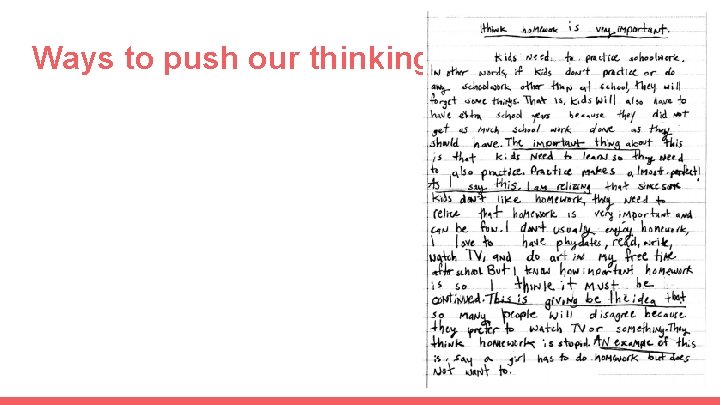 Ways to push our thinking
think homework is very important.
Kids need to practice schoolwork.
In other words, if kids don't practice or do
any schoolwork other than at school, they will
forget some things. That is, kids will also have to
have extra school years because they did not
get as much school work done as they
should have. The important thing about this
is that kids need to learn so they need
to also practice. Practice makes almost perfect!
As I say this, I am relizing that since some
kids don't like homework, they need to
relize that homework is very important and
can be fun. I don't usually enjoy homework,
I love to have playdates, read, write,
watch TV, and do art in my free time
after school. But I know how important homework
is so I think it must be
continued. This is giving be the idea that
so many people will disagree because
they prefer to watch TV or something. They
think homework is stupid. An example of this
is, say a girl has to do homework but does
not want to.